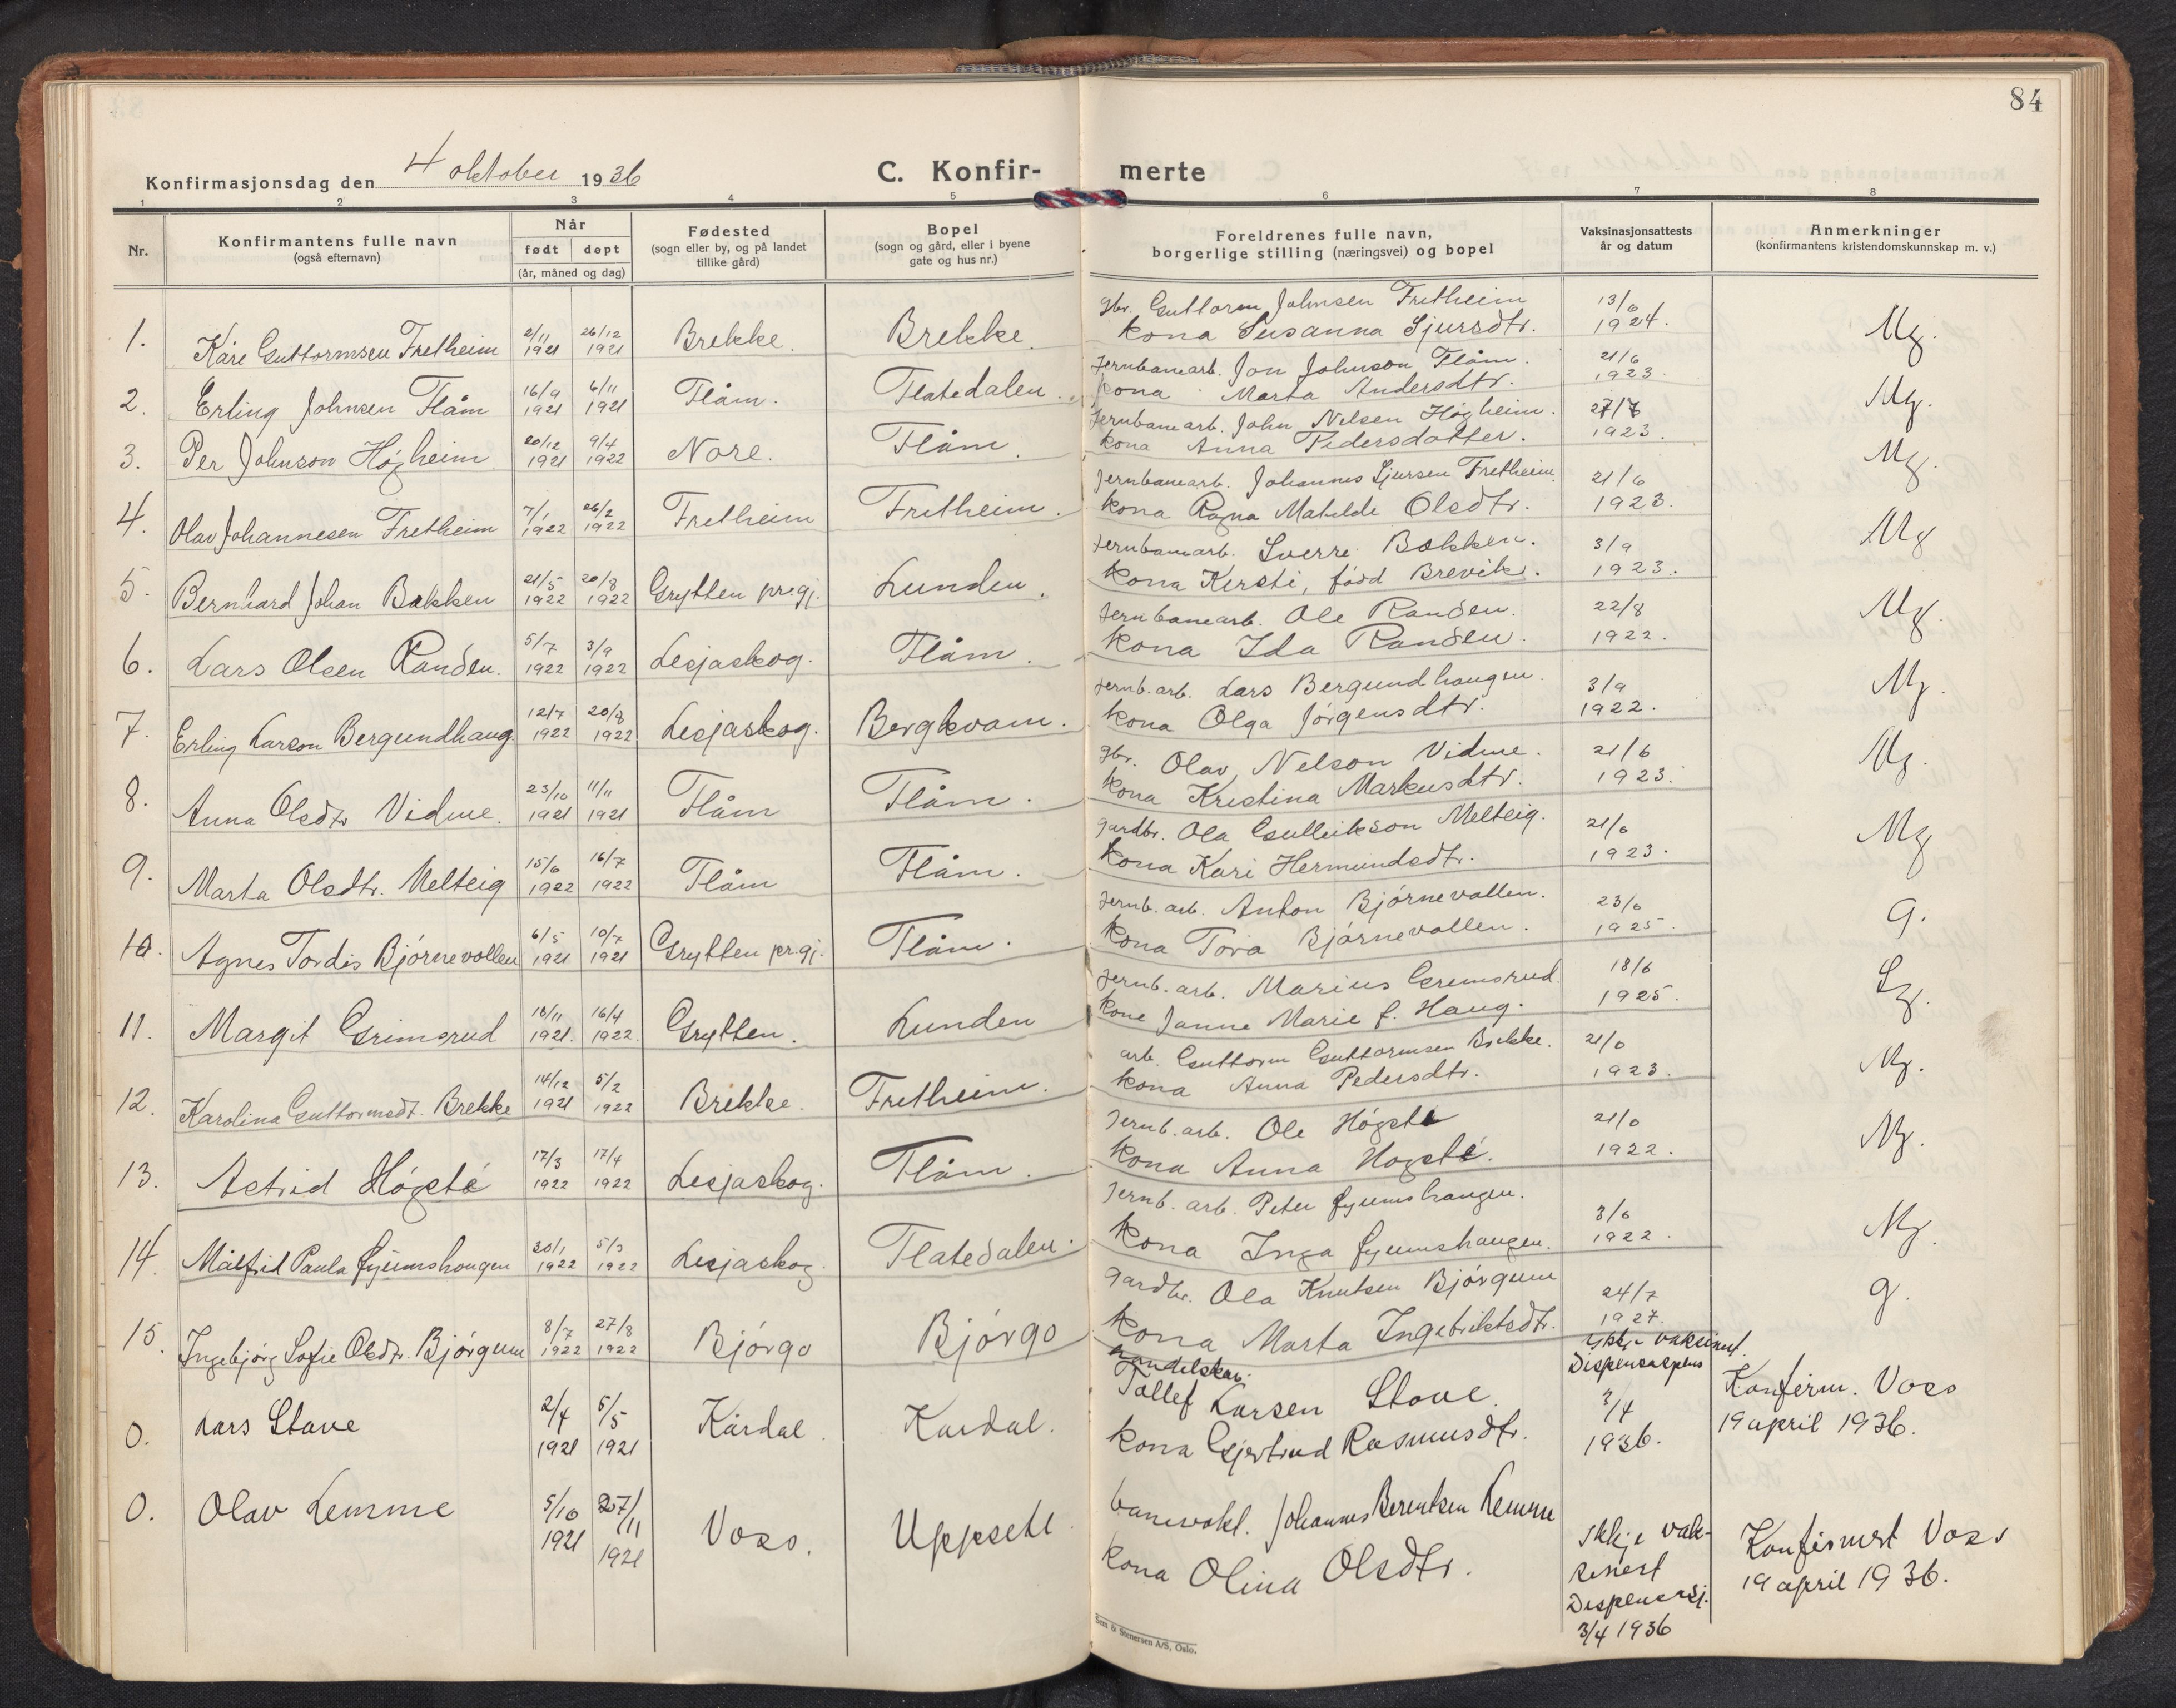 84
Konfirmasjonsdag den 4 oktober 1936 C. Konfir- merte
1 2 3 4 5 6 7 8
Nr. Konfirmantens fulle navn (også efternavn) Når født døpt (år, måned og dag) Fødested (sogn eller by, og på landet tillike gård) Bopel (sogn og gård, eller i byene gate og hus nr.) Foreldrenes fulle navn, borgerlige stilling (næringsvei) og bopel Vaksinasjonsattests år og datum Anmerkninger (konfirmantens kristendomskunnskap m. v.)
1. Kåre Guttormsen Fretheim 2/11 1921 26/12 1921 Brekke. Brekke. gbr. Guttorm Johnsen Fretheim 13/6
kona Susanna Sjursdtr. 1924. Mg.
2. Erling Johnsen Flåm 16/9 1921 6/11 1921 Flåm. Flatedalen. Jernbanearb. Jon Johnson Flåm. 21/6
kona Marta Andersdtr. 1923. Mg.
3. Per Johnson Høgheim 20/12 1921 9/4 1922 Nore. Flåm. Jernbanearb. John Nelsen Høgheim.
kona Anna Pedersdotter. 1923. Mg.
4. Olav Johannesen Fretheim 7/1 1922 26/2 1922 Fretheim Fretheim. Jernbanearb. Johannes Sjursen Fretheim. 21/6
kona Ragna Matilde Olsdtr. 1923. Mg
5. Bernhard Johan Bakken 21/5 1922 20/8 1922 Grytten pr.gj. Lunden. Jernbanearb. Sverre Bakken. 3/9
kona Kersti, född Brevik. 1923. Mg.
6. Lars Olsen Randen. 5/7 1922 3/9 1922 Lesjaskog. Flåm. Jernbanearb. Ole Randen. 22/8
kona Ida Randen. 1922. Mg.
7. Erling Larson Bergundhaug 12/7 1922 20/8 1922 Lesjaskog. Bergkvam. Jernb. arb. Lars Bergundhaugen. 3/9
kona Olga Jörgensdtr. 1922. Mg.
8. Anna Olsdtr Vidme. 23/10 1921 11/11 1921 Flåm Flåm. gbr. Olav Nelson Vidme. 21/6
kona Kristina Markusdtr. 1923. Mg
9. Marta Olsdtr. Melteig 15/6 1922 16/7 1922 Flåm Flåm. gardbr. Ola Gulleikson Melteig. 21/6
kona Kari Hermundsdtr. 1923. g.
10. Agnes Tordis Bjørnevollen 6/5 1921 10/7 1921 Grytten pr.gj. Flåm. Jernb. arb. Anton Bjørnevollen. 23/6
kona Tora Bjørnevollen. 1925.
11. Margit Grimsrud 18/11 1921. 16/4 1922 Grytten. Lunden Jernb. arb. Marius Gremsrud. 18/6
kone Janne Marie f. Haug. 1925.
12. Karolina Guttormsdt. Brekke 14/12 1921 5/2 1922 Brekke. Fretheim. arb. Guttorm Guttormsen Brekke. 21/6
kona Anna Pedersdtr. 1923. Mg.
13. Astrid Högsté 17/3 1922 17/4 1922 Lesjaskog. Flåm. Jernb. arb. Ole Högsté 21/6
kona Anna Hogsté. 1922. Mg.
14. Målfrid Paula 30/1 1922 5/3 1922 Lesjaskog. Flatedalen. Jernb. arb. Peter 3/6
kona Inga 1922. Mg.
15. Ingebjørg Sofie Olsdtr. Bjørgum 8/7 1922 27/8 1922 Bjørgo Bjørgo gardbr. Ola Knutsen Bjørgum 24/7
kona Marta Ingebriktsdtr. 1927. g.
0. Lars Stave 2/4 1921 5/5 1921 Kårdal. Kardal. handelskar. Tollef Larsen Stave. Ikkje vaksinert.
kona Gjertrud Rasmusdtr. 3/4 1936. Konfirm. Voss 19 april 1936.
0. Olav Lemme 5/10 1921 27/11 1921 Voss. Uppsete banevakt. Johannes Berentsen Lemme
kona Olina Olsdtr. Ikkje vaksinert Dispensasj. 3/4 1936 Konfirmert Voss 19 april 1936.
Sem & Stenersen A/S, Oslo.